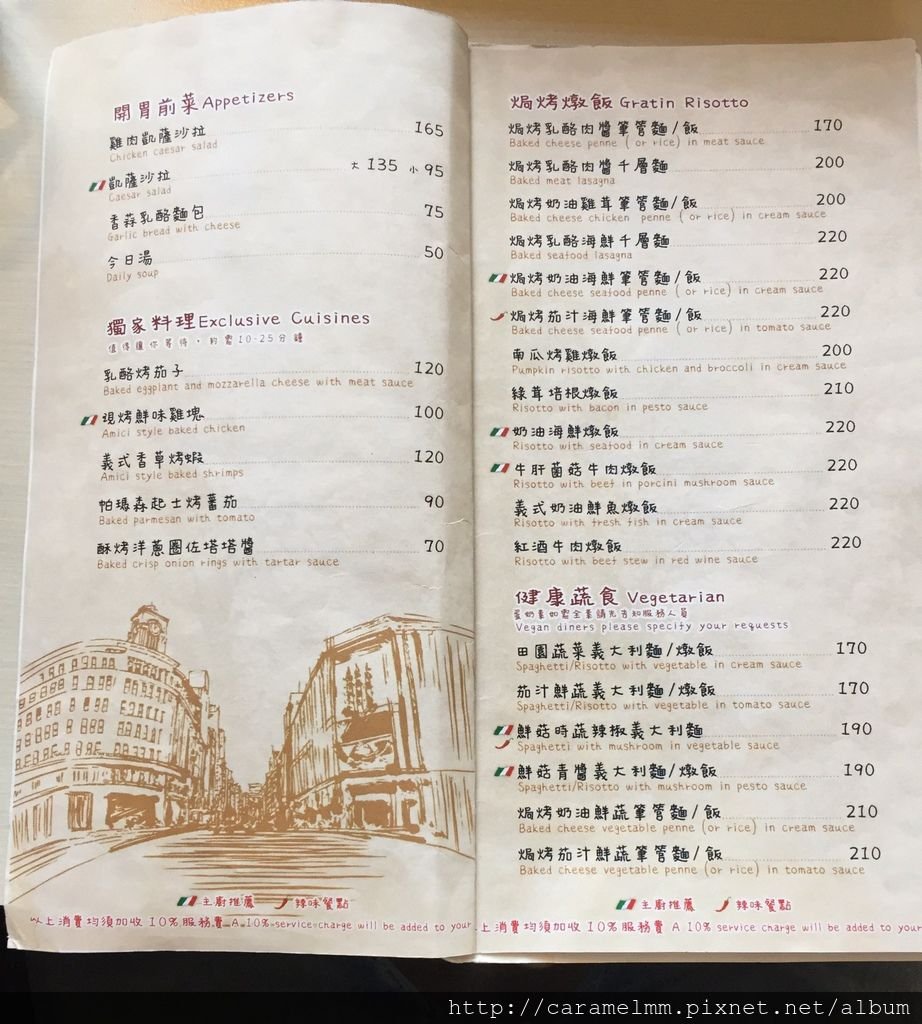 開胃前菜 Appetizers
雞肉凱薩沙拉 165
Chicken caesar salad
凱薩沙拉 大 135 小 95
Caesar salad
香蒜乳酪麵包 75
Garlic bread with cheese
今日湯 50
Daily soup
獨家料理 Exclusive Cuisines
值得讓你等待，約需10-25分鐘
乳酪烤茄子 120
Baked eggplant and mozzarella cheese with meat sauce
現烤鮮味雞塊 100
Amici style baked chicken
義式香草烤蝦 120
Amici style baked shrimps
帕瑪森起士烤蕃茄 90
Baked parmesan with tomato
酥烤洋蔥圈佐塔塔醬 70
Baked crisp onion rings with tartar sauce
主廚推薦 辣味餐點
以上消費均須加收 10% 服務費 A 10% service charge will be added to your
焗烤燉飯 Gratin Risotto
焗烤乳酪肉醬筆管麵/飯 170
Baked cheese penne ( or rice) in meat sauce
焗烤乳酪肉醬千層麵 200
Baked meat lasagna
焗烤奶油雞茸筆管麵/飯 200
Baked cheese chicken penne ( or rice) in cream sauce
焗烤乳酪海鮮千層麵 220
Baked seafood lasagna
焗烤奶油海鮮筆管麵/飯 220
Baked cheese seafood penne ( or rice) in cream sauce
焗烤茄汁海鮮筆管麵/飯 220
Baked cheese seafood penne ( or rice) in tomato sauce
南瓜烤雞燉飯 200
Pumpkin risotto with chicken and broccoli in cream sauce
綠茸培根燉飯 210
Risotto with bacon in pesto sauce
奶油海鮮燉飯 220
Risotto with seafood in cream sauce
牛肝菌菇牛肉燉飯 220
Risotto with beef in porcini mushroom sauce
義式奶油鮮魚燉飯 220
Risotto with fresh fish in cream sauce
紅酒牛肉燉飯 220
Risotto with beef stew in red wine sauce
健康蔬食 Vegetarian
蛋奶素如需全素請先告知服務人員
Vegan diners please specify your requests
田園蔬菜義大利麵/燉飯 170
Spaghetti/Risotto with vegetable in cream sauce
茄汁鮮蔬義大利麵/燉飯 170
Spaghetti/Risotto with vegetable in tomato sauce
鮮菇時蔬辣椒義大利麵 190
Spaghetti with mushroom in vegetable sauce
鮮菇青醬義大利麵/燉飯 190
Spaghetti/Risotto with mushroom in pesto sauce
焗烤奶油鮮蔬筆管麵/飯 210
Baked cheese vegetable penne (or rice) in cream sauce
焗烤茄汁鮮蔬筆管麵/飯 210
Baked cheese vegetable penne (or rice) in tomato sauce
主廚推薦 辣味餐點
上消費均須加收 10% 服務費 A 10% service charge will be added to your
http://caramelmm.pixnet.net/album